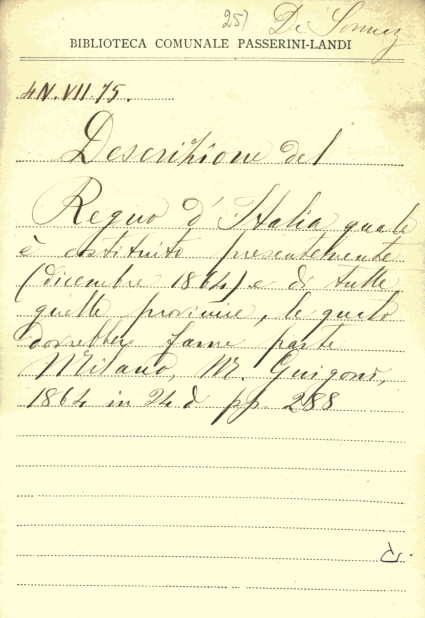 25) De
BIBLIOTECA COMUNALE PASSERINI-LANDI
4N.VII.75.
Descrizione del
Regno d'Italia quale
è costituito presentemente
(dicembre 1864) e di tutte
quelle provincie, le quali
dovrebber farne parte
Milano, M. Guigoni,
1864 in 24º pp 288